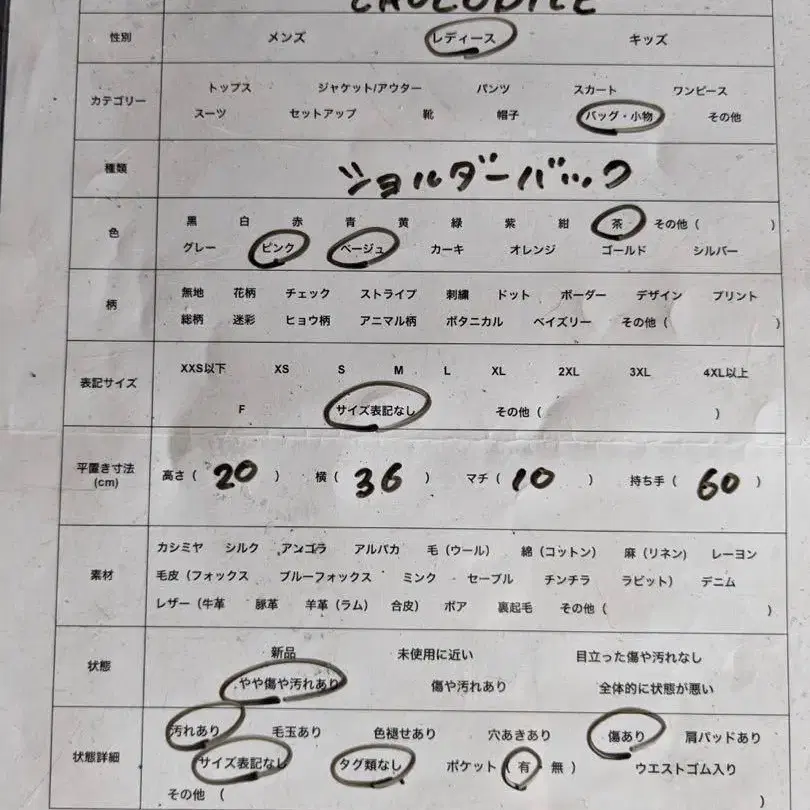 CROCODILE
性別 メンズ レディース キッズ
カテゴリー
トップス ジャケット/アウター パンツ スカート ワンピース
スーツ セットアップ 靴 帽子 バッグ・小物 その他
種類 ショルダーバック
色
黒 白 赤 青 黄 緑 紫 紺 茶 その他（ ）
グレー ピンク ベージュ カーキ オレンジ ゴールド シルバー
柄
無地 花柄 チェック ストライプ 刺繍 ドット ボーダー デザイン プリント
総柄 迷彩 ヒョウ柄 アニマル柄 ボタニカル ペイズリー その他（ ）
表記サイズ
XXS以下 XS S M L XL 2XL 3XL 4XL以上
F サイズ表記なし その他（ ）
平置き寸法
(cm)
高さ（ 20 ） 横（ 36 ） マチ（ 10 ） 持ち手（ 60 ）
素材
カシミヤ シルク アンゴラ アルパカ 毛（ウール） 綿（コットン） 麻（リネン） レーヨン
毛皮（フォックス ブルーフォックス ミンク セーブル チンチラ ラビット） デニム
レザー（牛革 豚革 羊革（ラム） 合皮） ボア 裏起毛 その他（ ）
状態
新品 未使用に近い 目立った傷や汚れなし
やや傷や汚れあり 傷や汚れあり 全体的に状態が悪い
状態詳細
汚れあり 毛玉あり 色褪せあり 穴あきあり 傷あり 肩パッドあり
サイズ表記なし タグ類なし ポケット（ 有・無 ） ウエストゴム入り
その他 （ ）